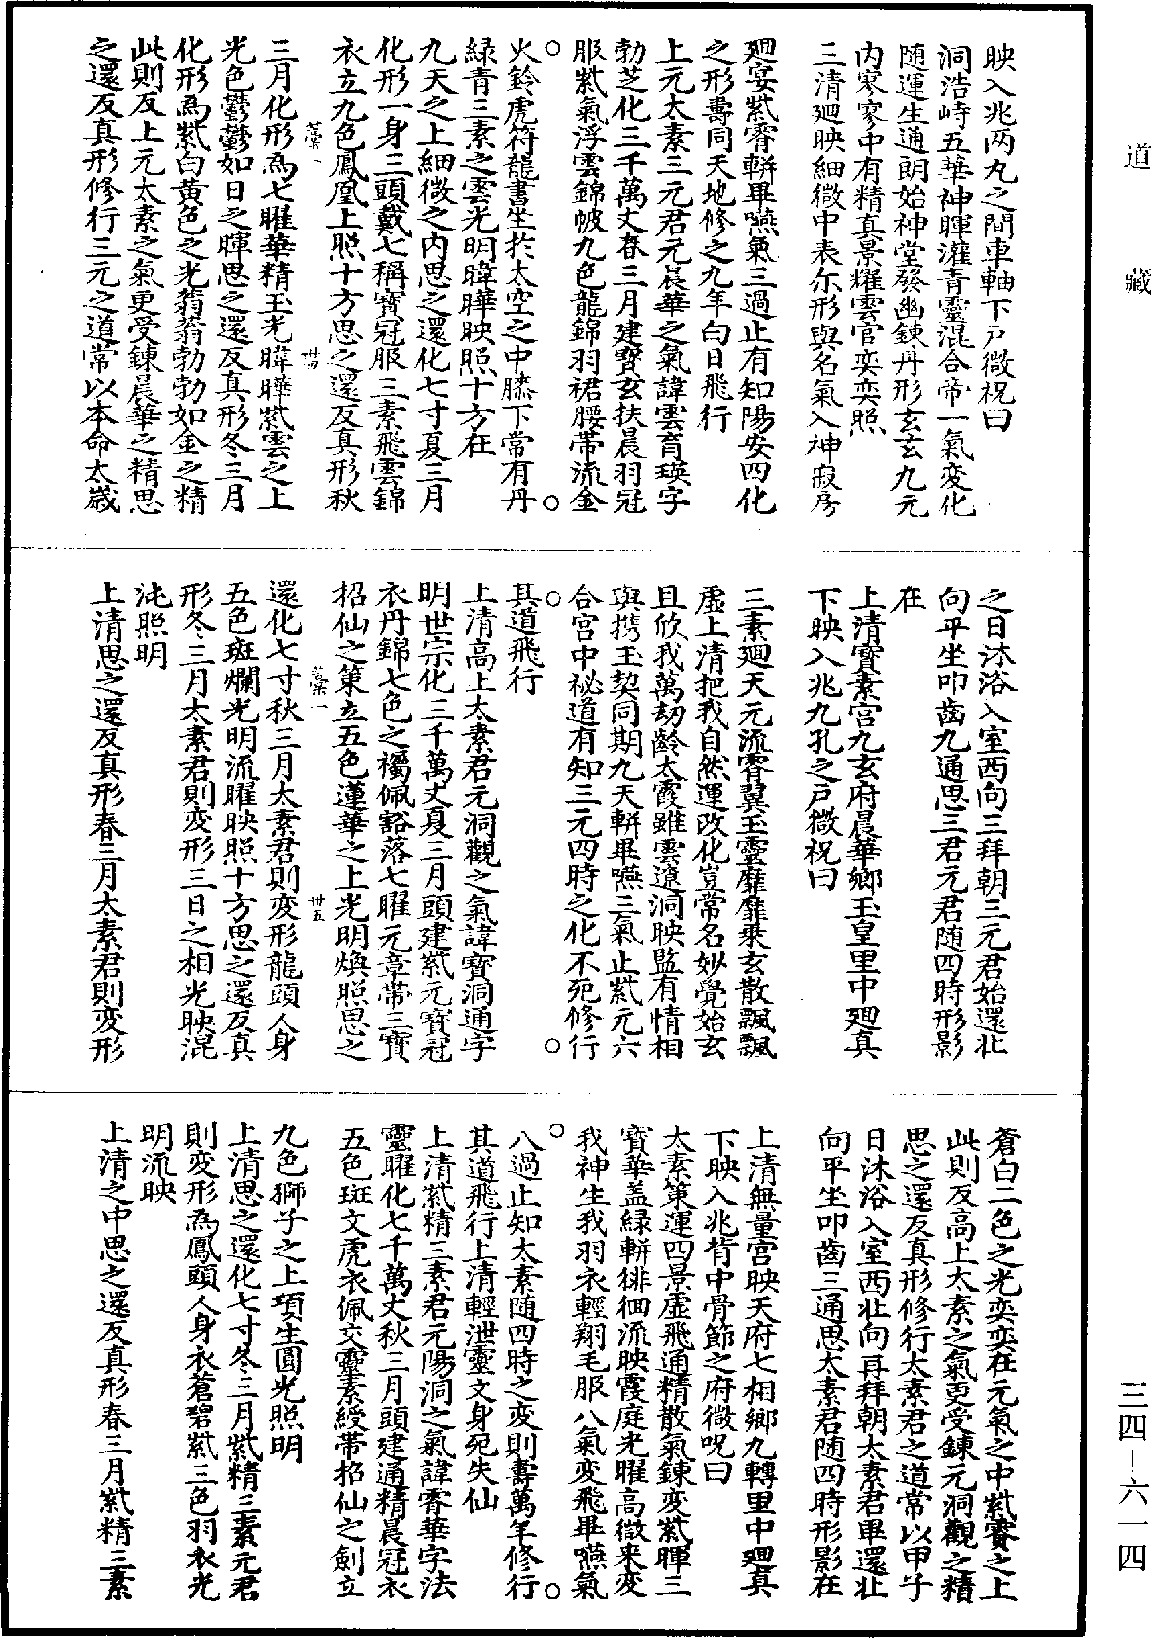 道藏
映入兆两丸之間車軸下戶微祝曰
洞浩峙五華神暉灌青靈混合帝一氣变化
随運生通朗始神堂發幽錬丹形玄玄九元
内寥寥中有精真景耀雲宫奕奕照
三清廻映細微中表尔形與名氣入神寂房
廻宴紫霄軿畢嚥氣三過止有知陽安四化
之形壽同天地修之九年白日飛行
上元太素三元君元晨華之氣諱雲育瑛字
勃芝化三千萬丈春三月建寳玄扶晨羽冠
服紫氣浮雲錦帔九色龍錦羽裙腰帯流金
火鈴虎符龍書坐扵太空之中膝下常有丹
緑青三素之雲光明暐曄映照十方在
九天之上細微之内思之還化七寸夏三月
化形一身三頭戴七稱寳冠服三素飛雲錦
衣立九色鳳凰上照十方思之還反真形秋
藁一
卅四
三月化形為七曜華精玉光暐曄紫雲之上
光色鬱鬱如日之暉思之還反真形冬三月
化形為紫白黄色之光蓊蓊勃勃如金之精
此則反上元太素之氣更受錬晨華之精思
之還反真形修行三元之道常以本命太嵗
之日沐浴入室西向三拜朝三元君始還北
向平坐叩齒九通思三君元君随四時形影
在
上清寳素宫九玄府晨華鄉玉皇里中廻真
下映入兆九孔之戶微祝曰
三素廻天元流霄翼玉靈靡靡乗玄散飄飄
虚上清把我自然運改化豈常名妙覺始玄
且欣我萬劫齡太霞雖雲遼洞映監有情相
與携玉契同期九天軿畢嚥三氣止紫元六
合宫中祕道有知三元四時之化不死修行
其道飛行
上清高上太素君元洞觀之氣諱寳洞通字
明世宗化三千萬丈夏三月頭建紫元寳冠
衣丹錦七色之襡佩豁落七曜元章帯三寳
招仙之策立五色蓮華之上光明煥照思之
藁一
卅五
還化七寸秋三月太素君則变形龍頭人身
五色斑爛光明流曜映照十方思之還反真
形冬三月太素君則变形三日之相光映混
沌照明
上清思之還反真形春三月太素君則变形
蒼白二色之光奕奕在元氣之中紫霄之上
此則反高上太素之氣更受錬元洞觀之精
思之還反真形修行太素君之道常以甲子
日沐浴入室西北向再拜朝太素君畢還北
向平坐叩齒三通思太素君随四時形影在
上清無量宫映天府七相鄉九轉里中廻真
下映入兆背中骨節之府微呪曰
太素策運四景虚飛通精散氣錬变紫暉三
寳華盖緑軿徘徊流映霞庭光曜高微来变
我神生我羽衣輕翔毛服八氣变飛畢嚥氣
八過止知太素随四時之变則壽萬年修行
其道飛行上清輕泄靈文身死失仙
上清紫精三素君元陽洞之氣諱霄華字法
靈曜化七千萬丈秋三月頭建通精晨冠衣
五色斑文虎衣佩交靈素綬帯招仙之劍立
九色獅子之上項生圓光照明
上清思之還化七寸冬三月紫精三素元君
則变形為鳳頭人身衣蒼碧紫三色羽衣光
明流映
上清之中思之還反真形春三月紫精三素
三四－六一四